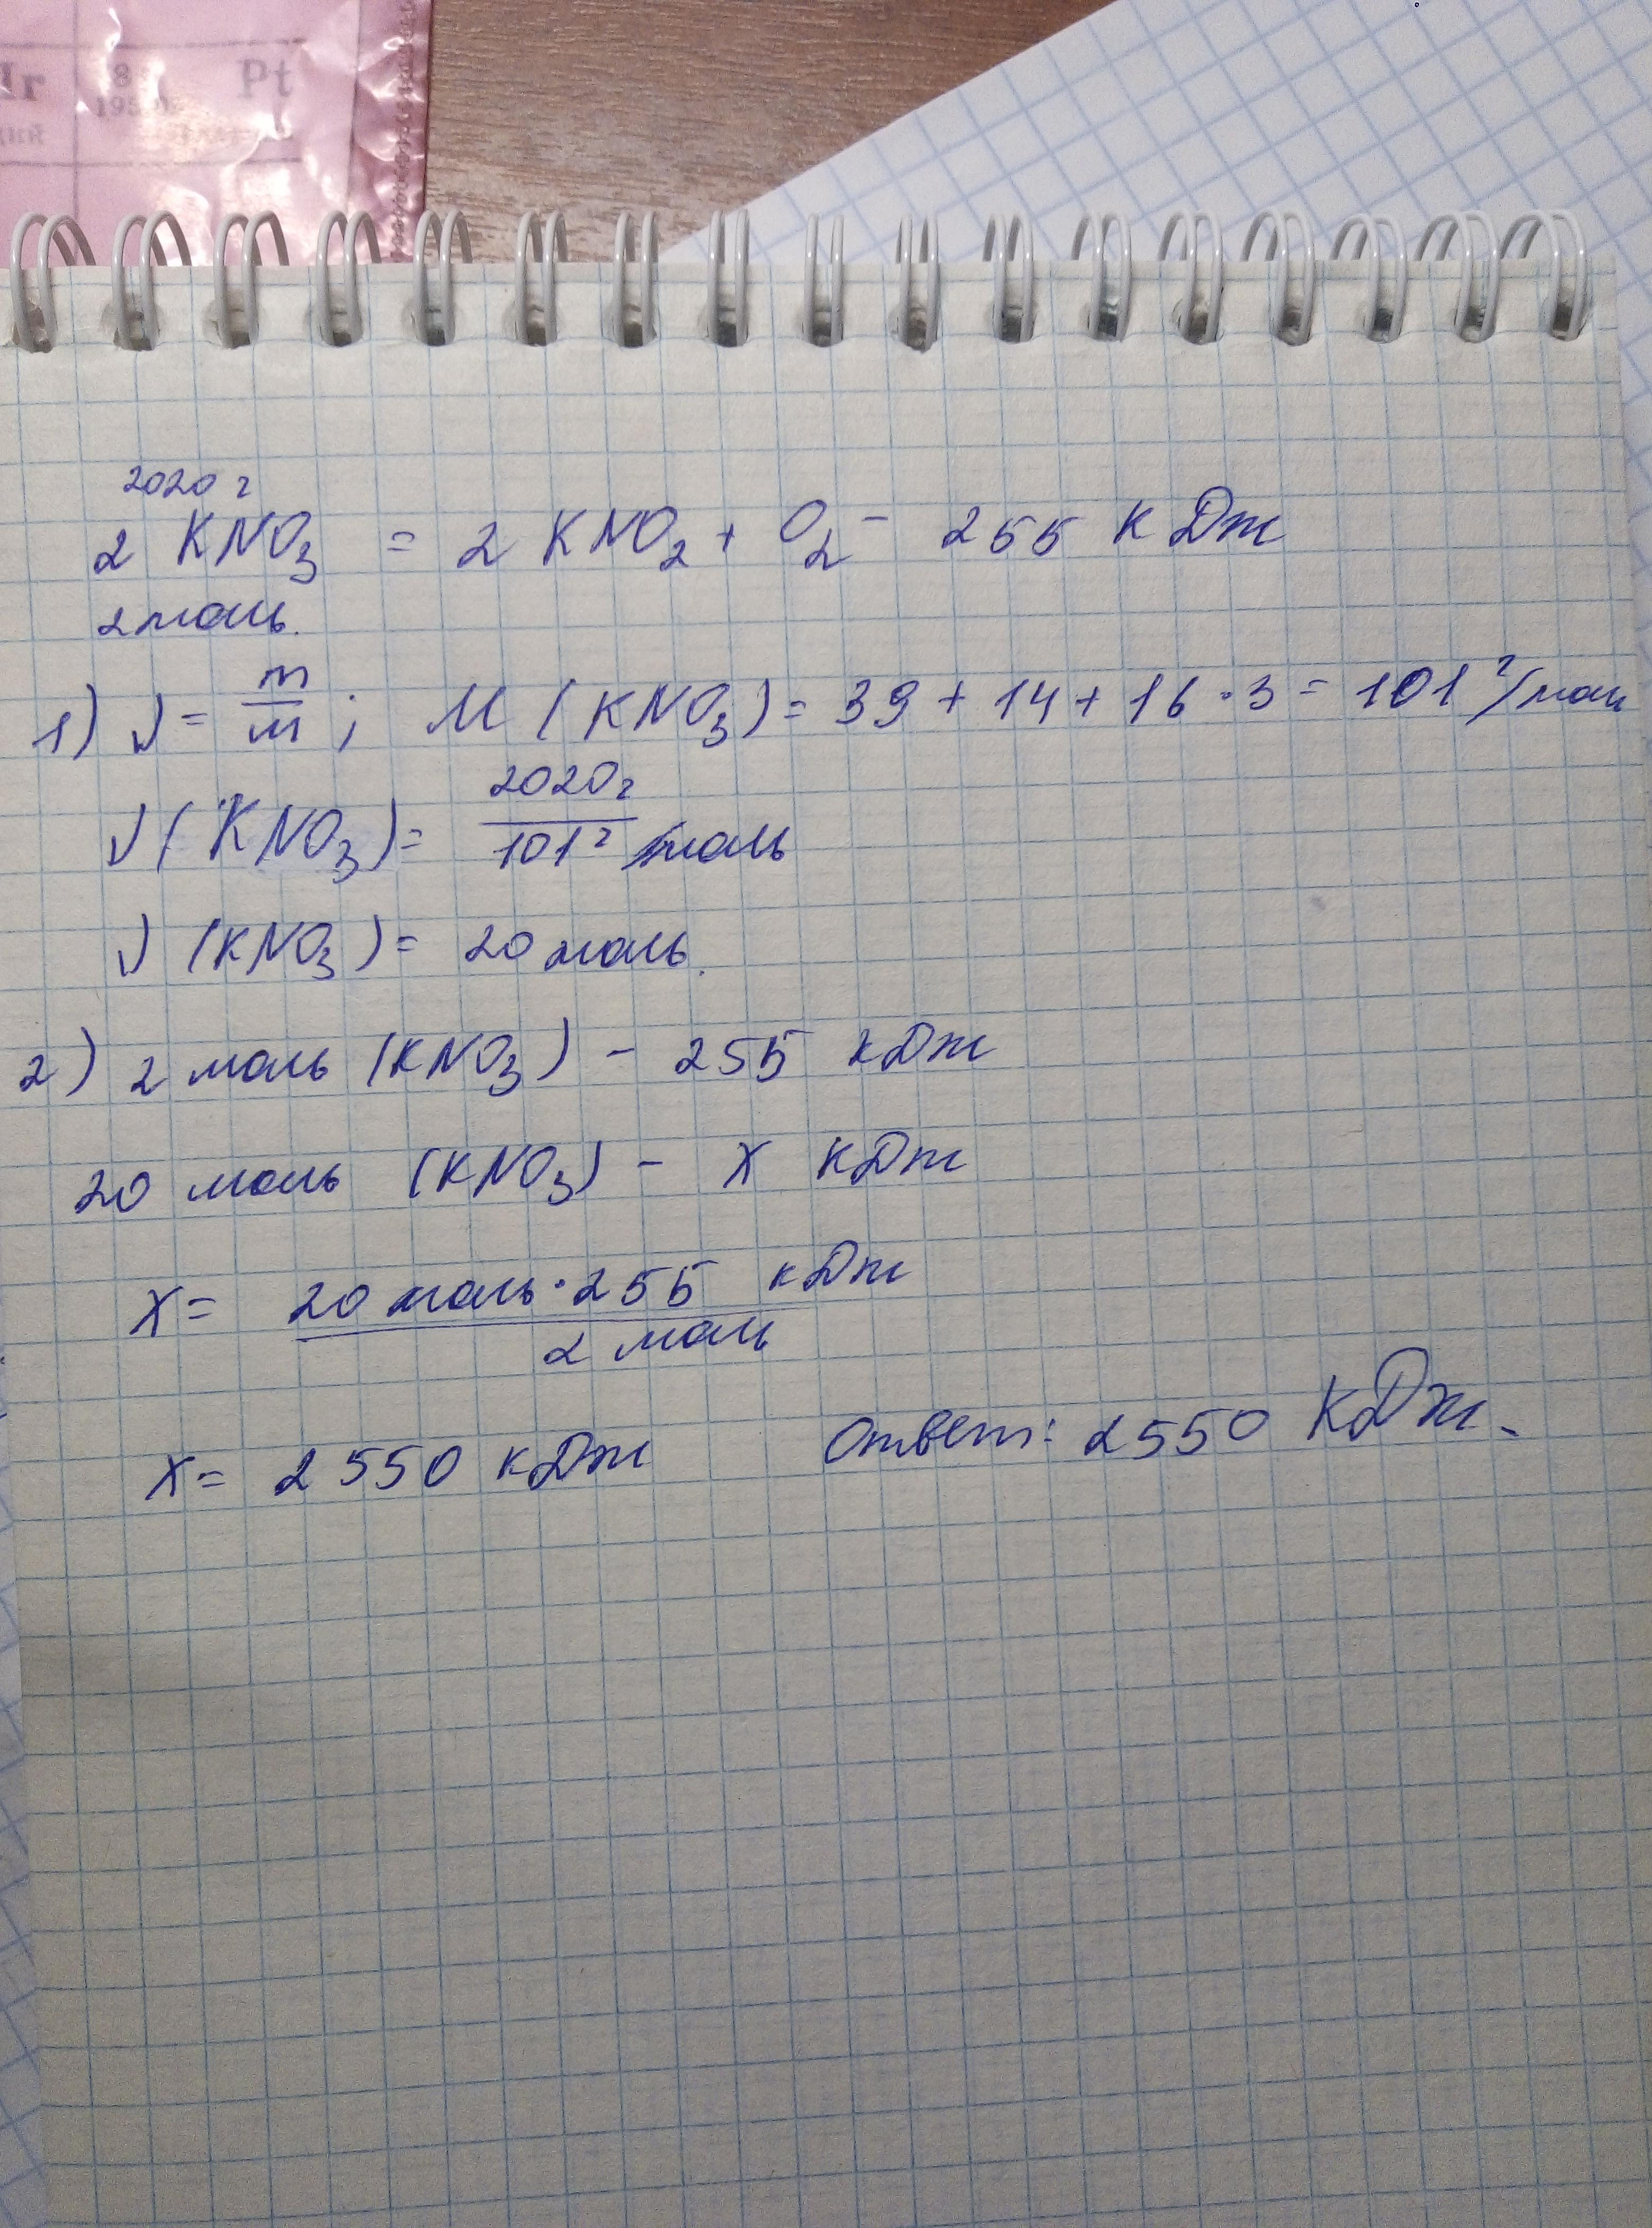 Ir 8 Pt
2020 г
2 KNO₃ = 2 KNO₂ + O₂ - 255 кДж
2 моль.
1) ν = m/M ; M (KNO₃) = 39 + 14 + 16 · 3 = 101 г/моль
ν (KNO₃) = 2020 г / 101 г/моль
ν (KNO₃) = 20 моль.
2) 2 моль (KNO₃) - 255 кДж
20 моль (KNO₃) - x кДж
x = 20 моль · 255 кДж / 2 моль
x = 2550 кДж Ответ: 2550 кДж.